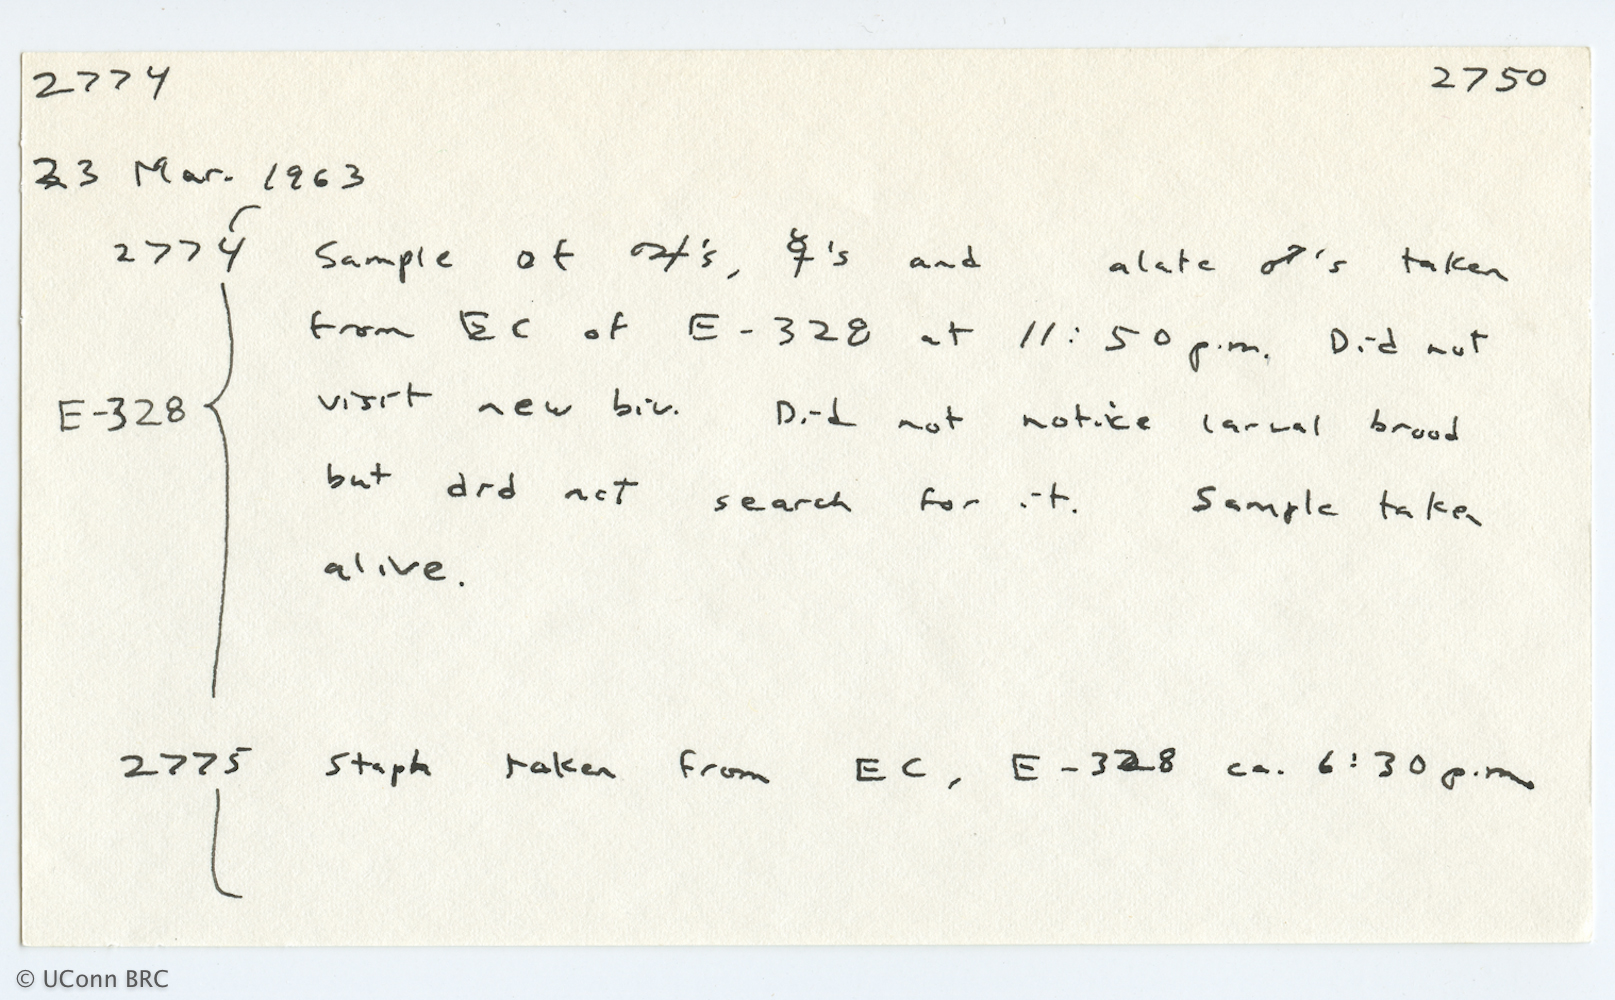 2774 2750
23 Mar. 1963
2774 Sample of ♃'s, ☿'s and alate ♂'s taken
from EC of E-328 at 11:50 p.m. Did not
E-328 visit new biv. Did not notice larval brood
but did not search for it. Sample taken
alive.
2775 Staph taken from EC, E-328 ca. 6:30 p.m.
© UConn BRC